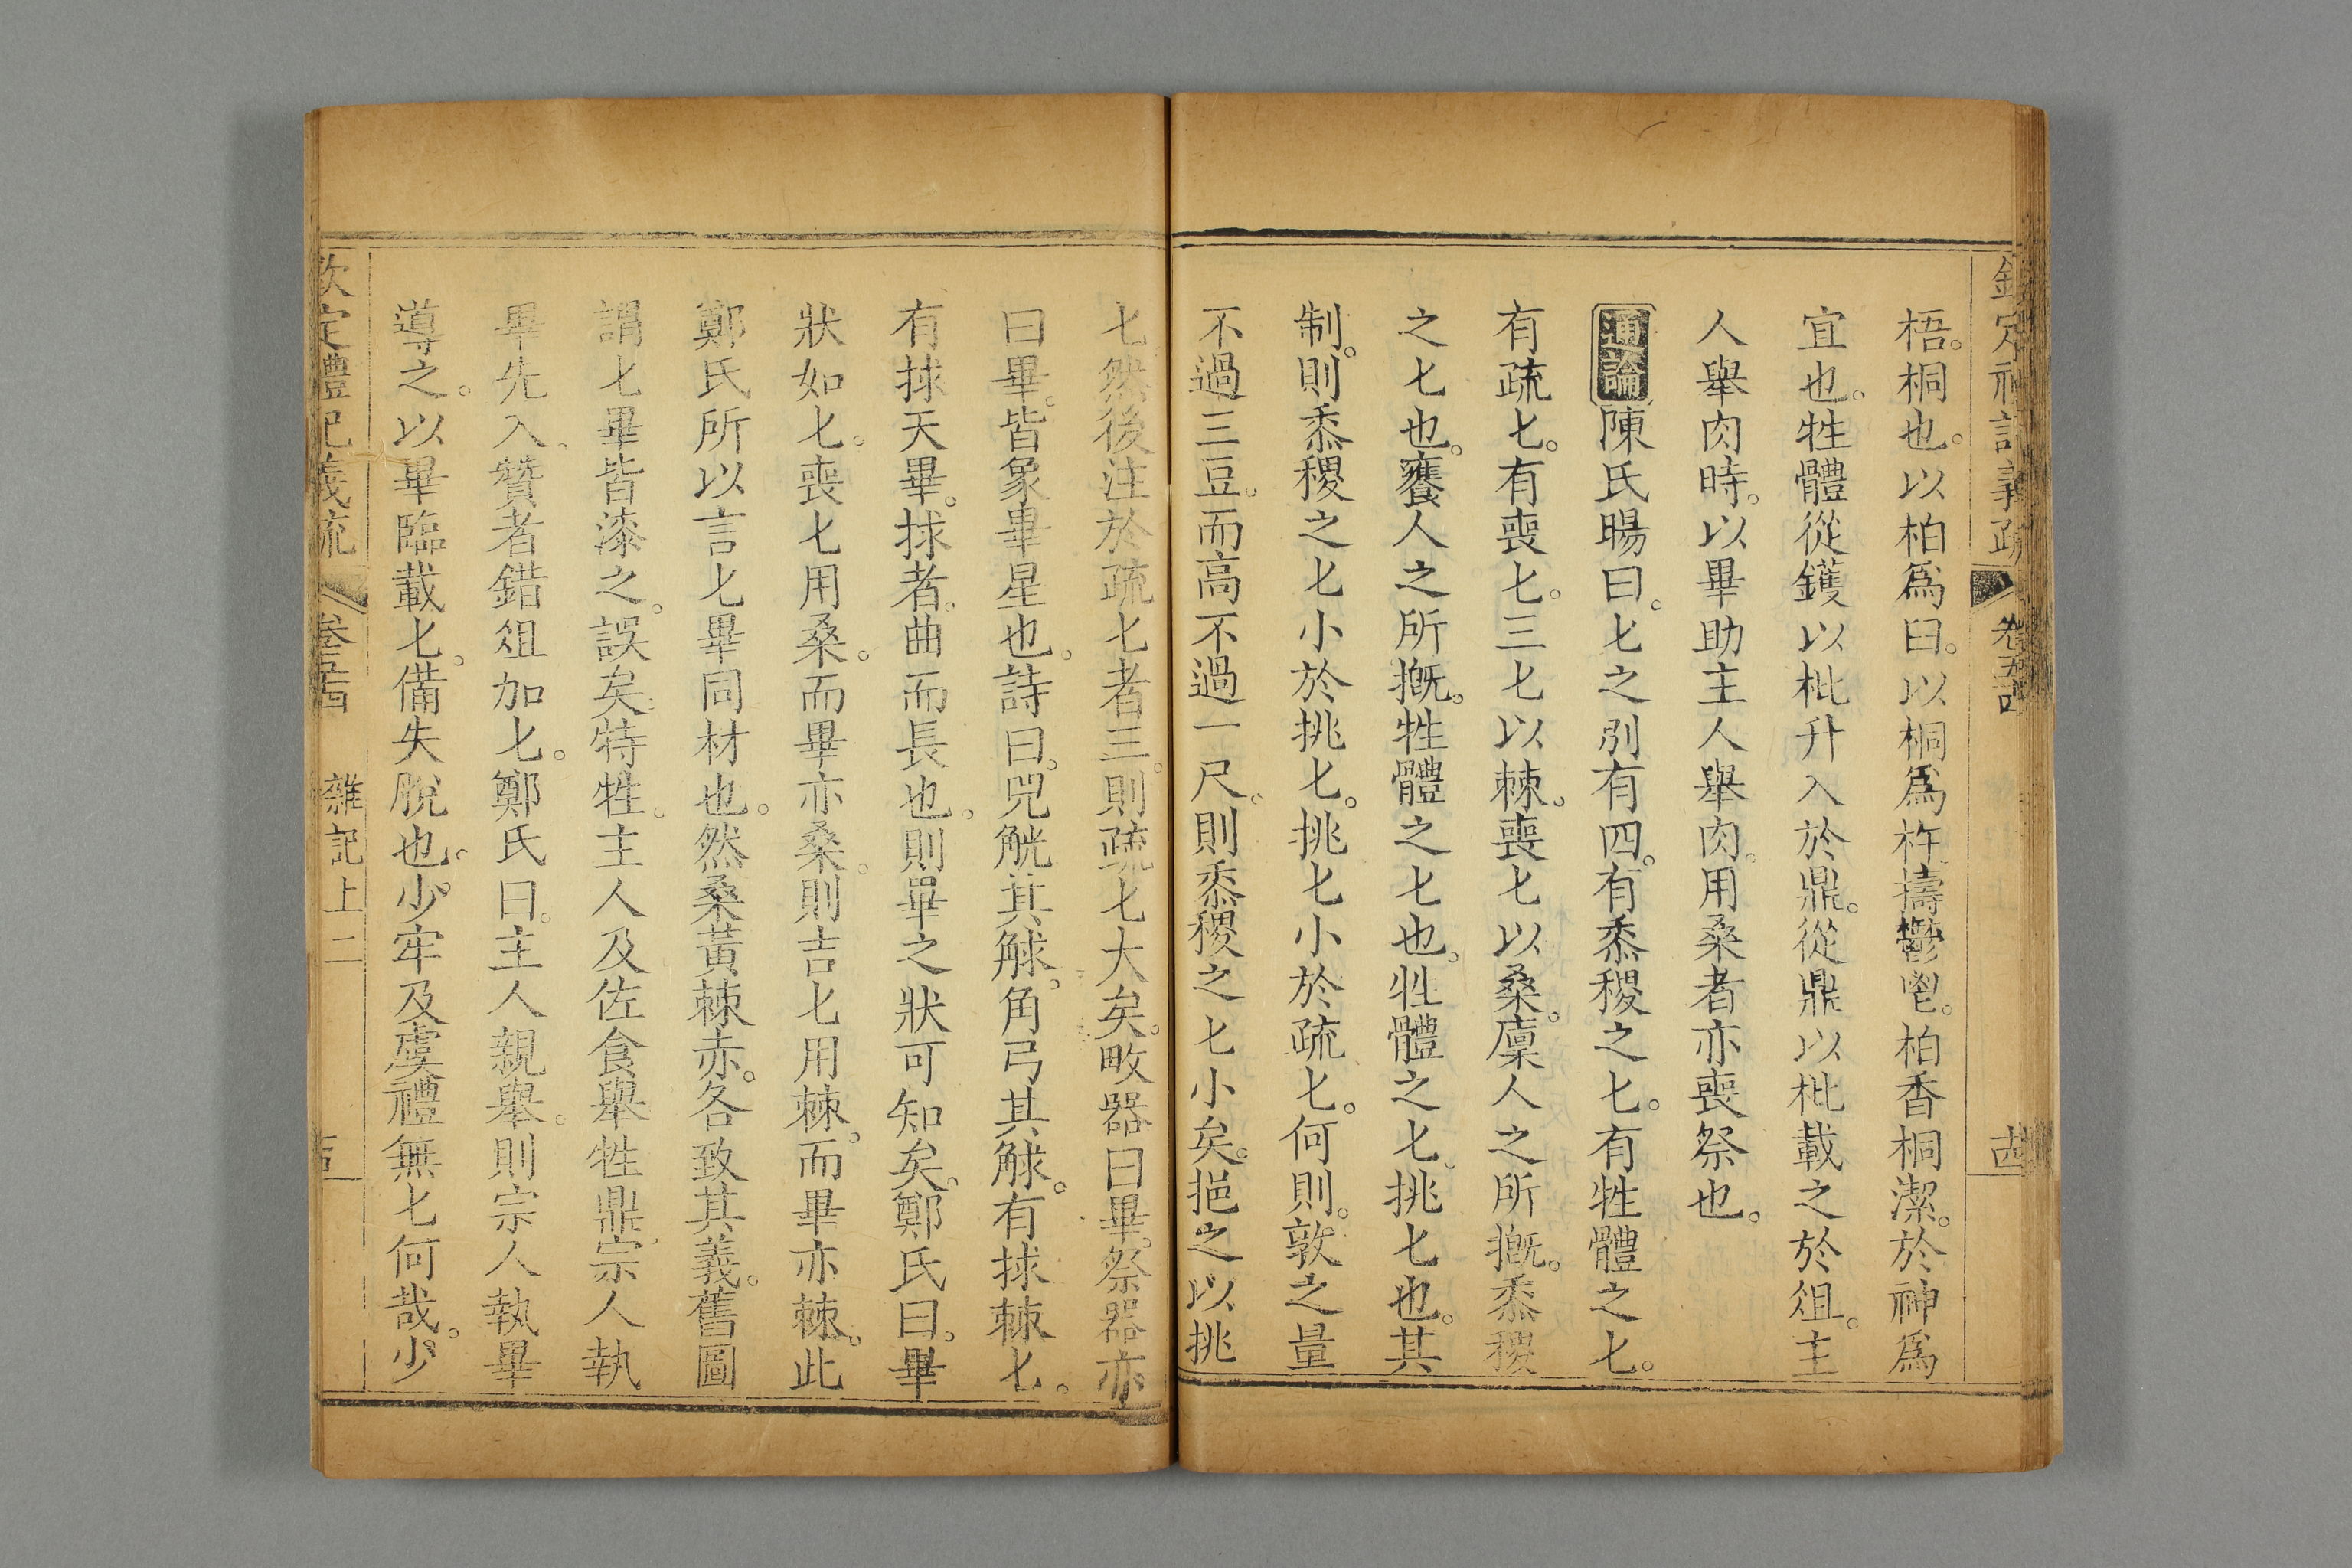 欽定禮記義疏 卷五十四 十四
梧。桐也。以柏爲臼。以桐爲杵擣鬱鬯。柏香桐潔。於神爲
宜也。牲體從鑊以枇升入於鼎。從鼎以枇載之於俎。主
人舉肉時。以畢助主人舉肉。用桑者亦喪祭也。
通論陳氏暘曰。匕之別有四。有黍稷之匕。有牲體之匕。
有疏匕。有喪匕。三匕以棘。喪匕以桑。廩人之所摡。黍稷
之匕也。饔人之所摡。牲體之匕也。牲體之匕。挑匕也。其
制。則黍稷之匕小於挑匕。挑匕小於疏匕。何則。敦之量
不過三豆。而高不過一尺。則黍稷之匕小矣。挹之以挑
匕然後注於疏匕者三。則疏匕大矣。畋器曰畢。祭器亦
曰畢。皆象畢星也。詩曰。兕觥其觩。角弓其觩。有捄棘匕。
有捄天畢。捄者。曲而長也。則畢之狀可知矣。鄭氏曰。畢
狀如匕。喪匕用桑。而畢亦桑。則吉匕用棘。而畢亦棘。此
鄭氏所以言匕畢同材也。然桑黃棘赤。各致其義。舊圖
謂匕畢皆漆之。誤矣。特牲。主人及佐食舉牲鼎。宗人執
畢先入。贊者錯俎加匕。鄭氏曰。主人親舉。則宗人執畢
導之。以畢臨載匕。備失脫也。少牢及虞禮無匕何哉。少
欽定禮記義疏 卷五十四 雜記上二